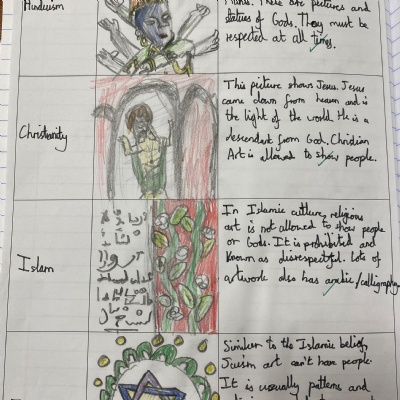 Hinduism
There are pictures and
statues of Gods. They must be
respected at all times.
Christianity
This picture shows Jesus. Jesus
came down from heaven and is
the light of the world. He is a
descendant from God. Christian
Art is allowed to show people.
Islam
In Islamic culture, religious
art is not allowed to show people
or Gods. It is prohibited and
known as disrespectful. Lots of
artwork also has arabic/calligraphy
Similar to the Islamic belief,
art can't have people.
It is usually patterns and